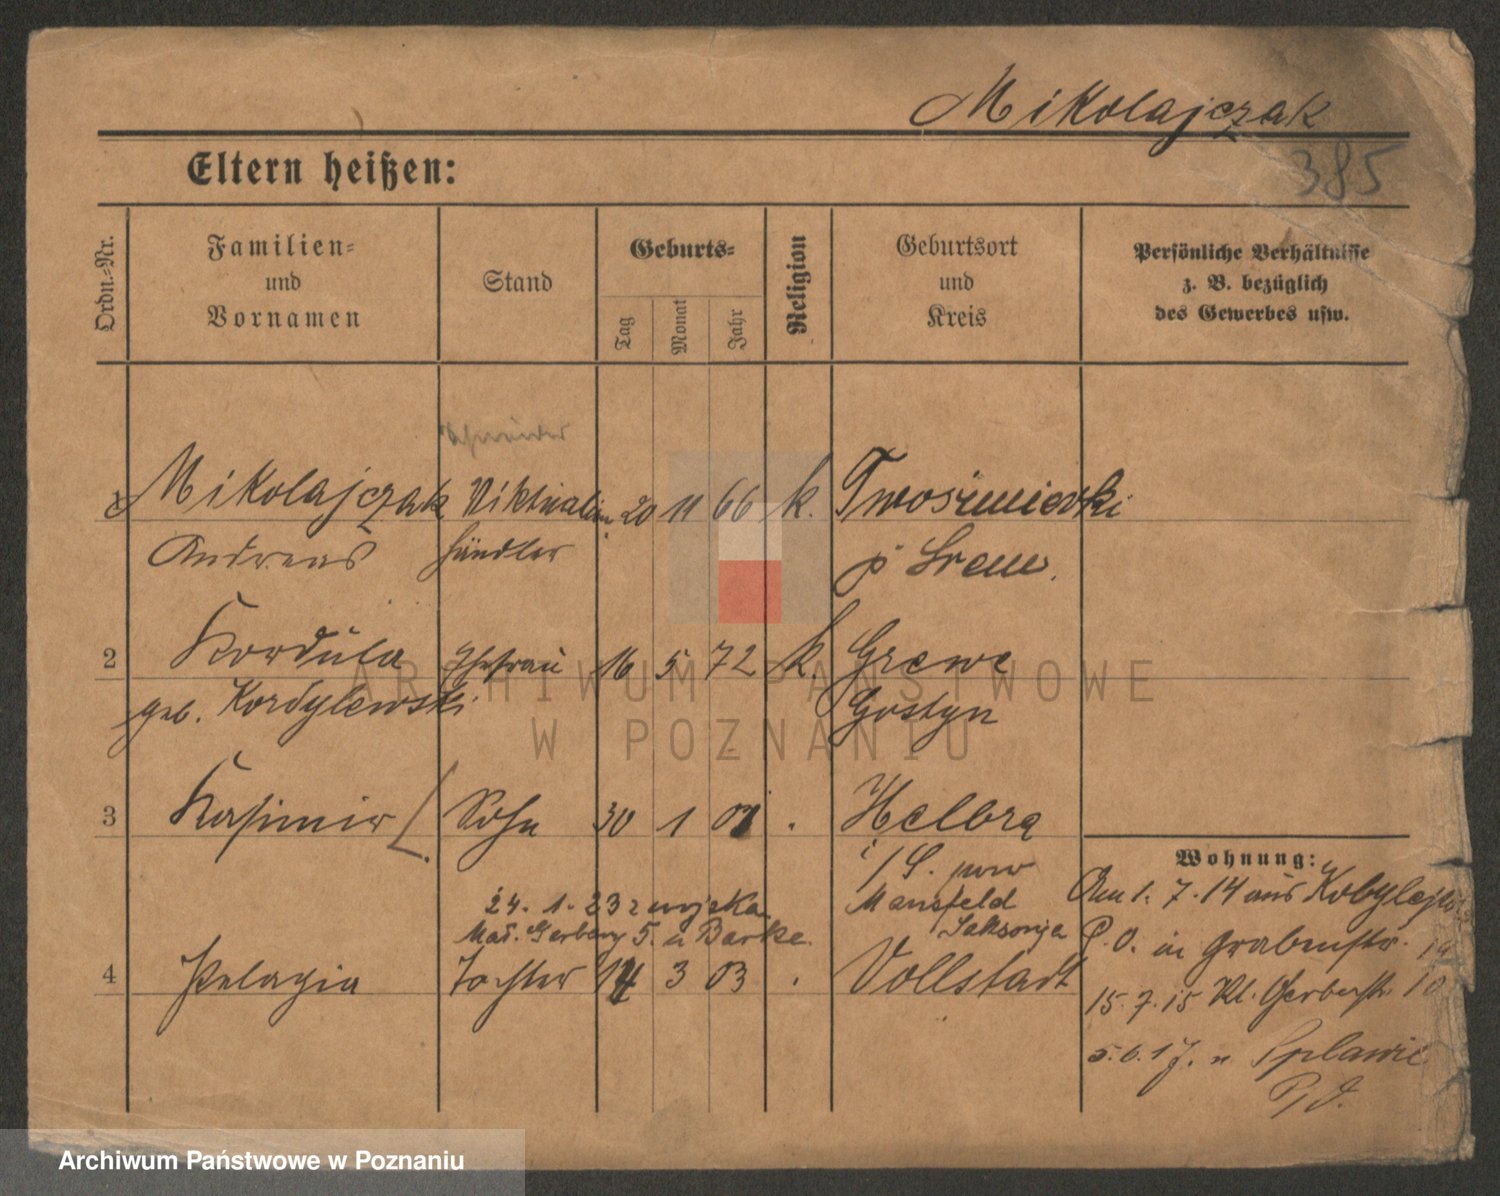 Mikolajczak
385
Eltern heißen:
Ordn.-Nr.
Familien-
und
Vornamen
Stand
Geburts-
Tag
Monat
Jahr
Religion
Geburtsort
und
Kreis
Persönliche Verhältnisse
z. B. bezüglich
des Gewerbes usw.
1 Mikolajczak Viktualien 20 11 66 k.
Andreas händler Srem.
2 Kordula Ehefrau 16 5 72 k. Grewe
geb. Kordylewski Gostyn
3 Kasimir Sohn 30 1 Helbra
Wohnung:
i/S. pow
Mansfeld
Saksonja
24. 1. 23 z wojska
Gerbary 5. u Barke.
4 Pelagia Tochter 14 3 03 Vollstadt
Am 1. 7. 14 aus Kobylepole
P. O. in Grabenstr. 19
15. 7. 15 Kl. Gerberstr. 10
5. 6. 17. n Splawie
P/O.
ARCHIWUM PAŃSTWOWE
W POZNANIU
Archiwum Państwowe w Poznaniu